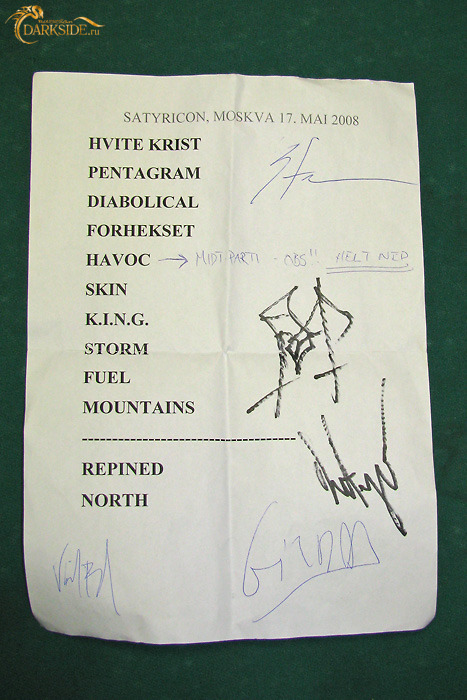 DARKSIDE.ru
SATYRICON, MOSKVA 17. MAI 2008
HVITE KRIST
PENTAGRAM
DIABOLICAL
FORHEKSET
HAVOC → MIDTPARTI - OBS!! HELT NED
SKIN
K.I.N.G.
STORM
FUEL
MOUNTAINS
--------------------------------------
REPINED
NORTH